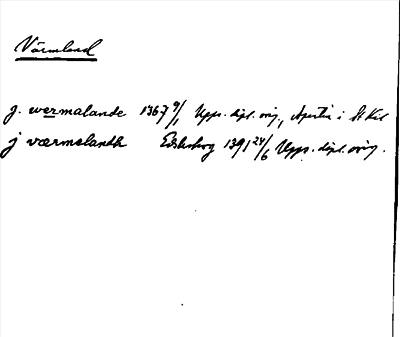 Värmland
g. wermalande 1367 9/1 Upps. dipl. orig., Apertin i St Kil
j værmelandh Edsholog 1391 24/6 Upps. dipl. orig.